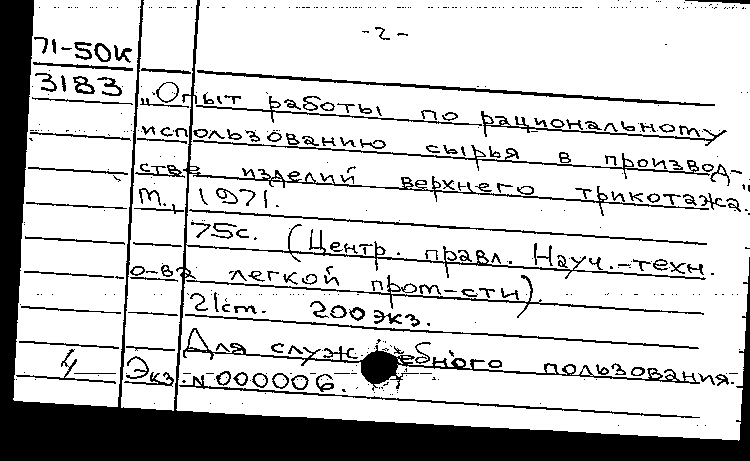 -2-
71-50К
3183
„Опыт работы по рациональному
использованию сырья в производ-
стве изделий верхнего трикотажа."
М., 1971.
75с. (Центр. правл. Науч.-техн.
о-ва легкой пром-сти).
21см. 200 экз.
Для служебного пользования.
4 Экз. N 000006.